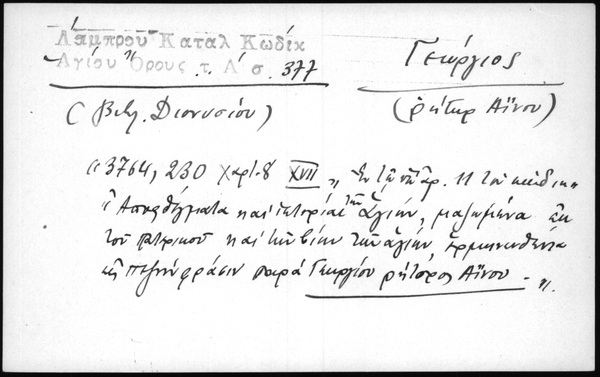 Λάμπρου Καταλ Κωδίκ
Ἁγίου Ὄρους τ. Α΄ σ. 377
Γεώργιος
(Βιβλ. Διονυσίου)
(ῥήτωρ Αἴνου)
"3764, 230 Χαρτ. 8 XVII " Ἐν τῷ ὑπ' ἀρ. 11 τοῦ κώδικ "
" Ἀποφθέγματα καὶ ἱστορίαι τῶν ἁγίων, μαζωμένα ἐκ
τοῦ πατερικοῦ καὶ τῶν βίων τῶν ἁγίων, ἑρμηνευθέντα
εἰς πεζὴν φράσιν παρὰ Γεωργίου ῥήτορος Αἴνου - ".